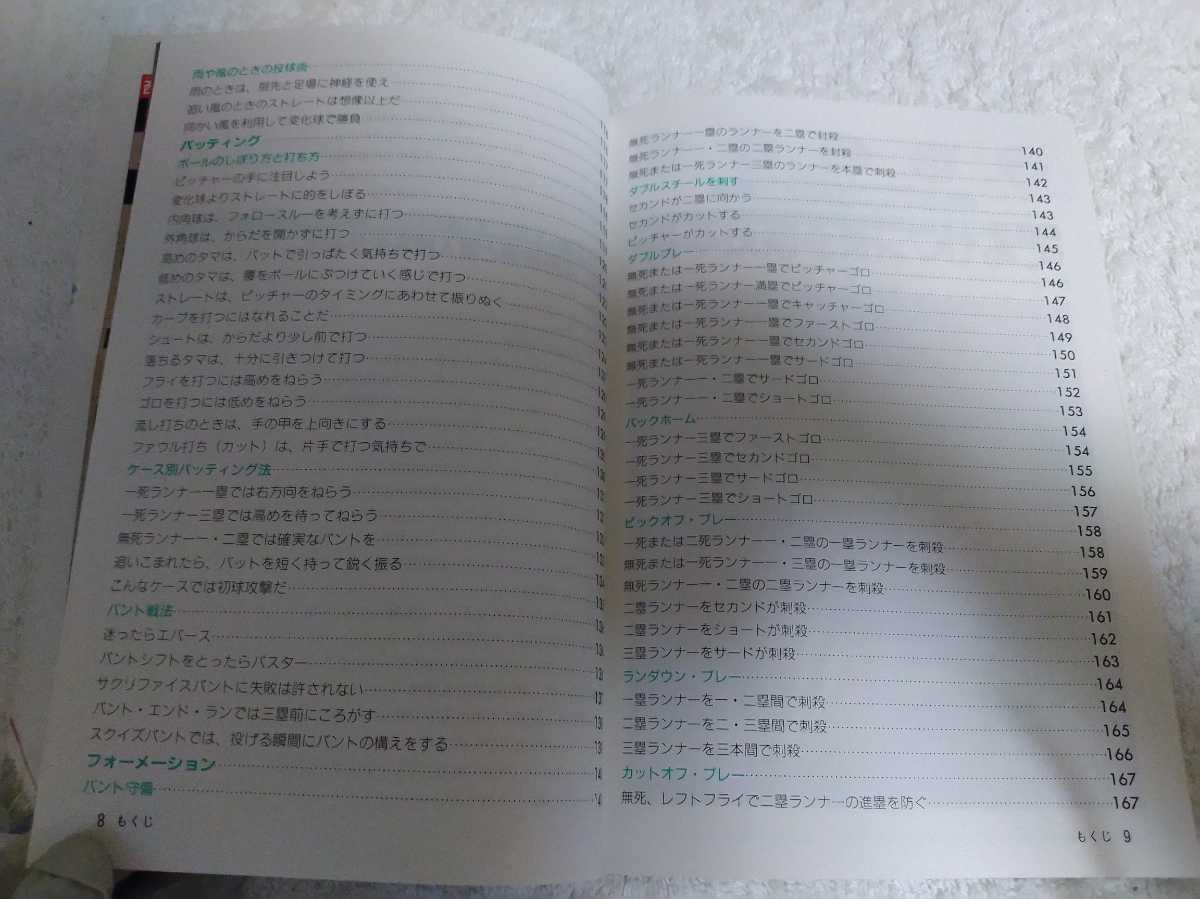 雨や風のときの投球術
雨のときは、指先と足場に神経を使え
追い風のときのストレートは想像以上だ
向かい風を利用して変化球で勝負
バッティング
ボールのしぼり方と打ち方
ピッチャーの手に注目しよう
変化球よりストレートに的をしぼる
内角球は、フォロースルーを考えずに打つ
外角球は、からだを開かずに打つ
高めのタマは、バットで引っぱたく気持ちで打つ
低めのタマは、腰をボールにぶつけていく感じで打つ
ストレートは、ピッチャーのタイミングにあわせて振りぬく
カーブを打つにはなれることだ
シュートは、からだより少し前で打つ
落ちるタマは、十分に引きつけて打つ
フライを打つには高めをねらう
ゴロを打つには低めをねらう
流し打ちのときは、手の甲を上向きにする
ファウル打ち（カット）は、片手で打つ気持ちで
ケース別バッティング法
一死ランナー一塁では右方向をねらう
一死ランナー三塁では高めを待ってねらう
無死ランナー一・二塁では確実なバントを
追いこまれたら、バットを短く持って鋭く振る
こんなケースでは初球攻撃だ
バント戦法
迷ったらエバース
バントシフトをとったらバスター
サクリファイスバントに失敗は許されない
バント・エンド・ランでは三塁前にころがす
スクイズバントでは、投げる瞬間にバントの構えをする
フォーメーション
バント守備
8 もくじ
無死ランナー一塁のランナーを二塁で封殺 140
無死ランナー一・二塁の二塁ランナーを封殺 141
無死または一死ランナー三塁のランナーを本塁で刺殺 142
ダブルスチールを刺す 143
セカンドが二塁に向かう 143
セカンドがカットする 144
ピッチャーがカットする 145
ダブルプレー 146
無死または一死ランナー一塁でピッチャーゴロ 146
無死または一死ランナー満塁でピッチャーゴロ 147
無死または一死ランナー一塁でキャッチャーゴロ 148
無死または一死ランナー一塁でファーストゴロ 149
無死または一死ランナー一塁でセカンドゴロ 150
無死または一死ランナー一塁でサードゴロ 151
一死ランナー一・二塁でサードゴロ 152
一死ランナー一・二塁でショートゴロ 153
バックホーム 154
一死ランナー三塁でファーストゴロ 154
一死ランナー三塁でセカンドゴロ 155
一死ランナー三塁でサードゴロ 156
一死ランナー三塁でショートゴロ 157
ピックオフ・プレー 158
一死または二死ランナー一・二塁の一塁ランナーを刺殺 158
無死または一死ランナー一・三塁の一塁ランナーを刺殺 159
無死ランナー一・二塁の二塁ランナーを刺殺 160
二塁ランナーをセカンドが刺殺 161
二塁ランナーをショートが刺殺 162
三塁ランナーをサードが刺殺 163
ランダウン・プレー 164
一塁ランナーを一・二塁間で刺殺 164
二塁ランナーを二・三塁間で刺殺 165
三塁ランナーを三本間で刺殺 166
カットオフ・プレー 167
無死、レフトフライで二塁ランナーの進塁を防ぐ 167
もくじ 9